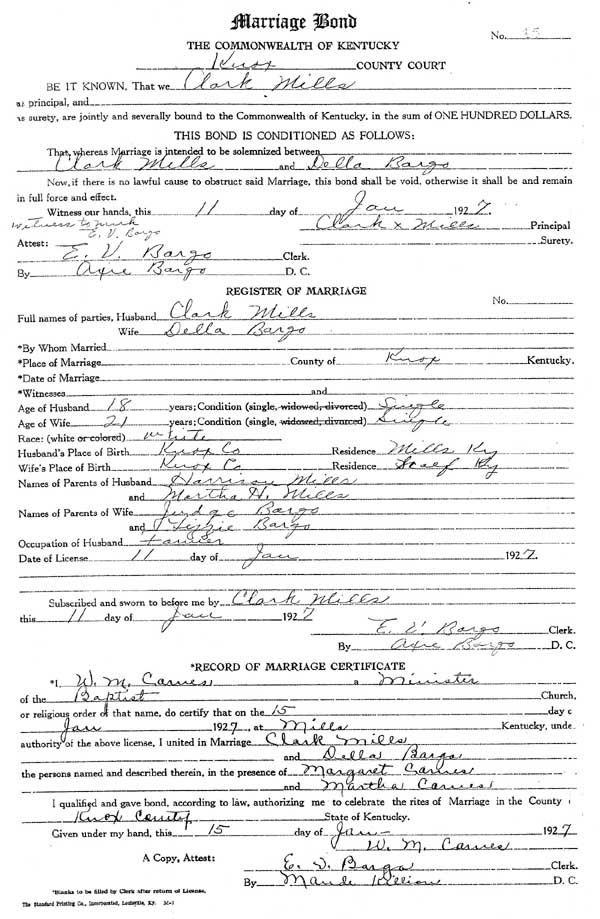 Marriage Bond
No. 15
THE COMMONWEALTH OF KENTUCKY
Knox COUNTY COURT
BE IT KNOWN, That we Clark Mills
as principal, and
as surety, are jointly and severally bound to the Commonwealth of Kentucky, in the sum of ONE HUNDRED DOLLARS.
THIS BOND IS CONDITIONED AS FOLLOWS:
That, whereas Marriage is intended to be solemnized between
Clark Mills and Della Bargo
Now, if there is no lawful cause to obstruct said Marriage, this bond shall be void, otherwise it shall be and remain
in full force and effect.
Witness our hands, this 11 day of Jan 1927.
witness to mark
E. V. Bargo
Clark x Mills Principal
Surety.
Attest: E. V. Bargo Clerk.
By Axie Bargo D. C.
REGISTER OF MARRIAGE
No.
Full names of parties, Husband Clark Mills
Wife Della Bargo
*By Whom Married
*Place of Marriage County of Knox Kentucky.
*Date of Marriage
*Witnesses and
Age of Husband 18 years; Condition (single, widowed, divorced) Single
Age of Wife 21 years; Condition (single, widowed, divorced) Single
Race: (white or colored) white
Husband's Place of Birth Knox Co Residence Mills Ky
Wife's Place of Birth Knox Co Residence Ky
Names of Parents of Husband Harrison Mills
and Martha H. Mills
Names of Parents of Wife Judge Bargo
and Lizzie Bargo
Occupation of Husband Farmer
Date of License 11 day of Jan 1927.
Subscribed and sworn to before me by Clark Mills
this 11 day of Jan 1927
E. V. Bargo Clerk.
By Axie Bargo D. C.
*RECORD OF MARRIAGE CERTIFICATE
*I, W. M. Carnes a Minister
of the Baptist Church,
or religious order of that name, do certify that on the 15 day o
Jan 1927, at Mills Kentucky, unde
authority of the above license, I united in Marriage Clark Mills
and Della Bargo
the persons named and described therein, in the presence of Margaret Carnes
and Martha Carnes
I qualified and gave bond, according to law, authorizing me to celebrate the rites of Marriage in the County
Knox County State of Kentucky.
Given under my hand, this 15 day of Jan 1927
W. M. Carnes
A Copy, Attest: E. V. Bargo Clerk.
By Maude Killion D. C.
*Blanks to be filled by Clerk after return of License.
The Standard Printing Co., Incorporated, Louisville, Ky.